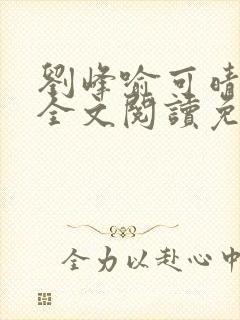 劉峰喻可晴
全文閱讀免
全力以赴心中